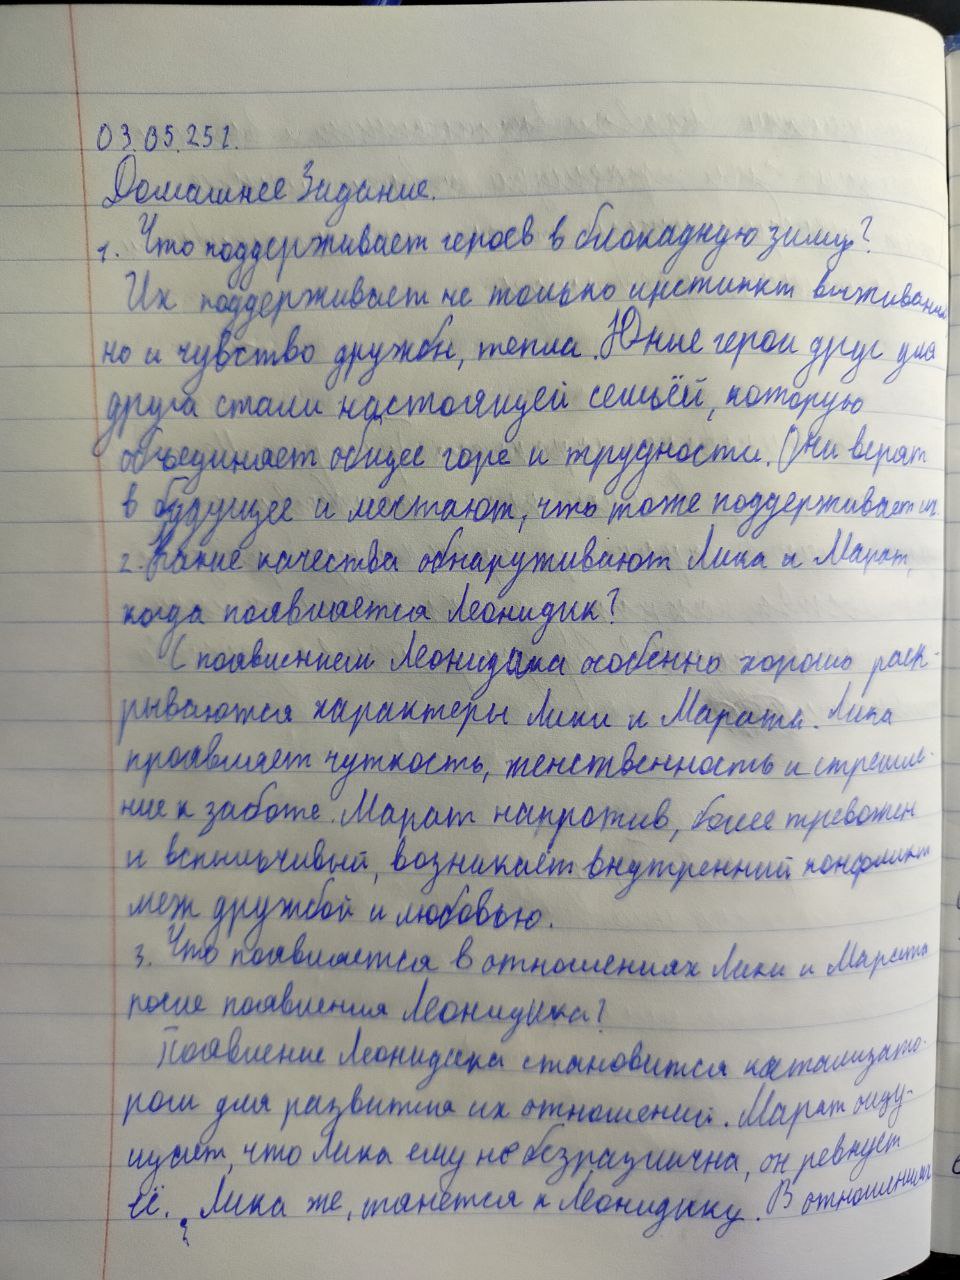 03.05.25г.
Домашнее Задание.
1. Что поддерживает героев в блокадную зиму?
Их поддерживает не только инстинкт выживания,
но и чувство дружбы, тепла. Юные герои друг для
друга стали настоящей семьёй, которую
объединяет общее горе и трудности. Они верят
в будущее и мечтают, что тоже поддерживает их.
2. Какие качества обнаруживают Лика и Марат,
когда появляется Леонидик?
С появлением Леонидика особенно хорошо раск-
рываются характеры Лики и Марата. Лика
проявляет чуткость, женственность и стремле-
ние к заботе. Марат напротив, более тревожен
и вспыльчивый, возникает внутренний конфликт
меж дружбой и любовью.
3. Что появляется в отношениях Лики и Марата
после появления Леонидика?
Появление Леонидика становится катализато-
ром для развития их отношений. Марат ощу-
щает, что Лика ему не безразлична, он ревнует
её. Лика же, тянется к Леонидику. В отношениях